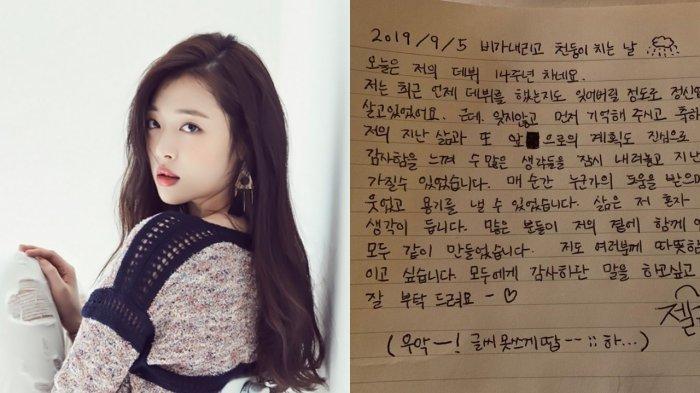 2019/9/5 비가내리고 천둥이 치는 날
오늘은 저의 데뷔 14주년 차네요.
저는 최근 언제 데뷔를 했는지도 잊어버릴 정도로 정신없
살고있었어요. 근데, 잊지않고 먼저 기억해 주시고 축하
저의 지난 삶과 또 앞으로의 계획도 진심으로
감사함을 느껴 수많은 생각들을 잠시 내려놓고 지난
가질수 있었습니다. 매 순간 누군가의 도움을 받으며
웃었고 용기를 낼 수 있었습니다. 삶은 저 혼자
생각이 듭니다. 많은 분들이 저의 곁에 함께
모두 같이 만들었습니다. 저도 여러분께 따뜻한
이고 싶습니다 모두에게 감사하단 말을 하고싶고
잘 부탁 드려요 - ♡
(우악-! 글씨 못쓰게땁--;; 하...)